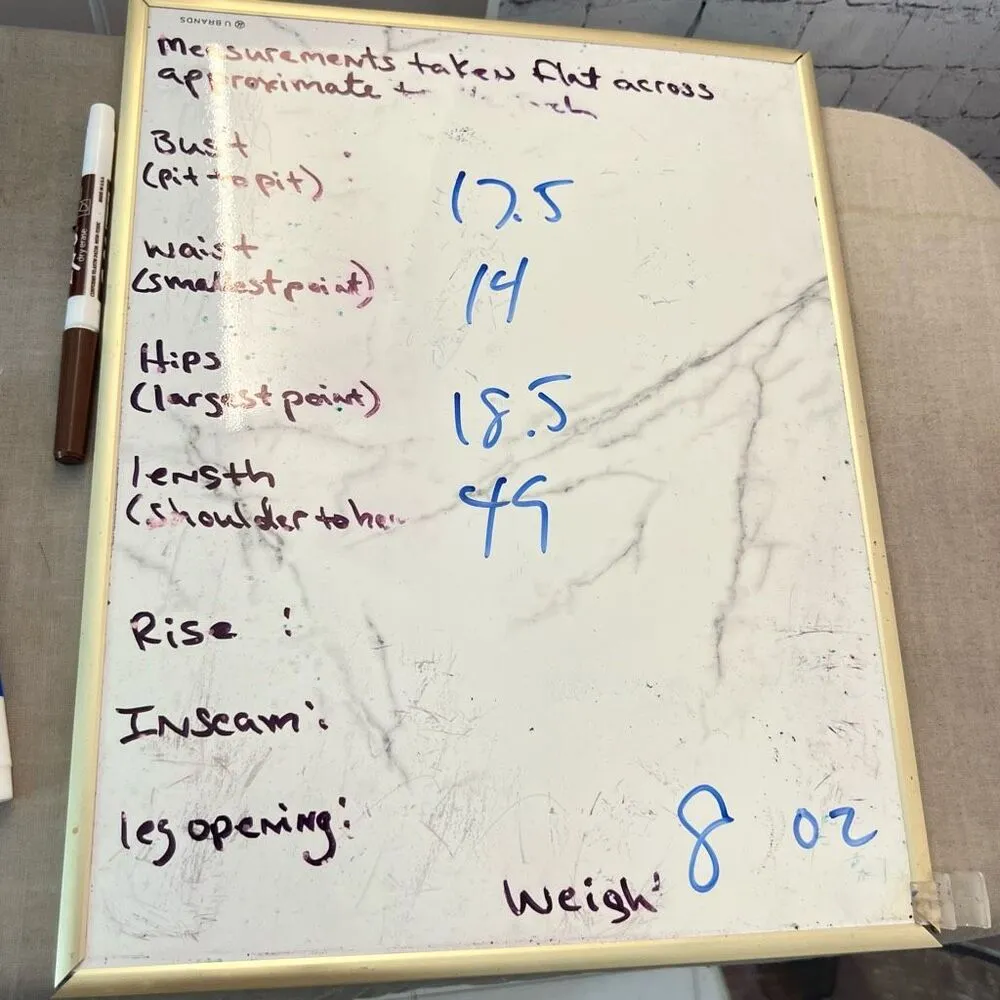 U BRANDS
Measurements taken flat across
approximate
Bust :
(pit to pit)
17.5
Waist
(smallest point)
14
Hips
(largest point)
18.5
length
(shoulder to
49
Rise :
Inseam:
leg opening:
8 oz
Weigh:
dry erase